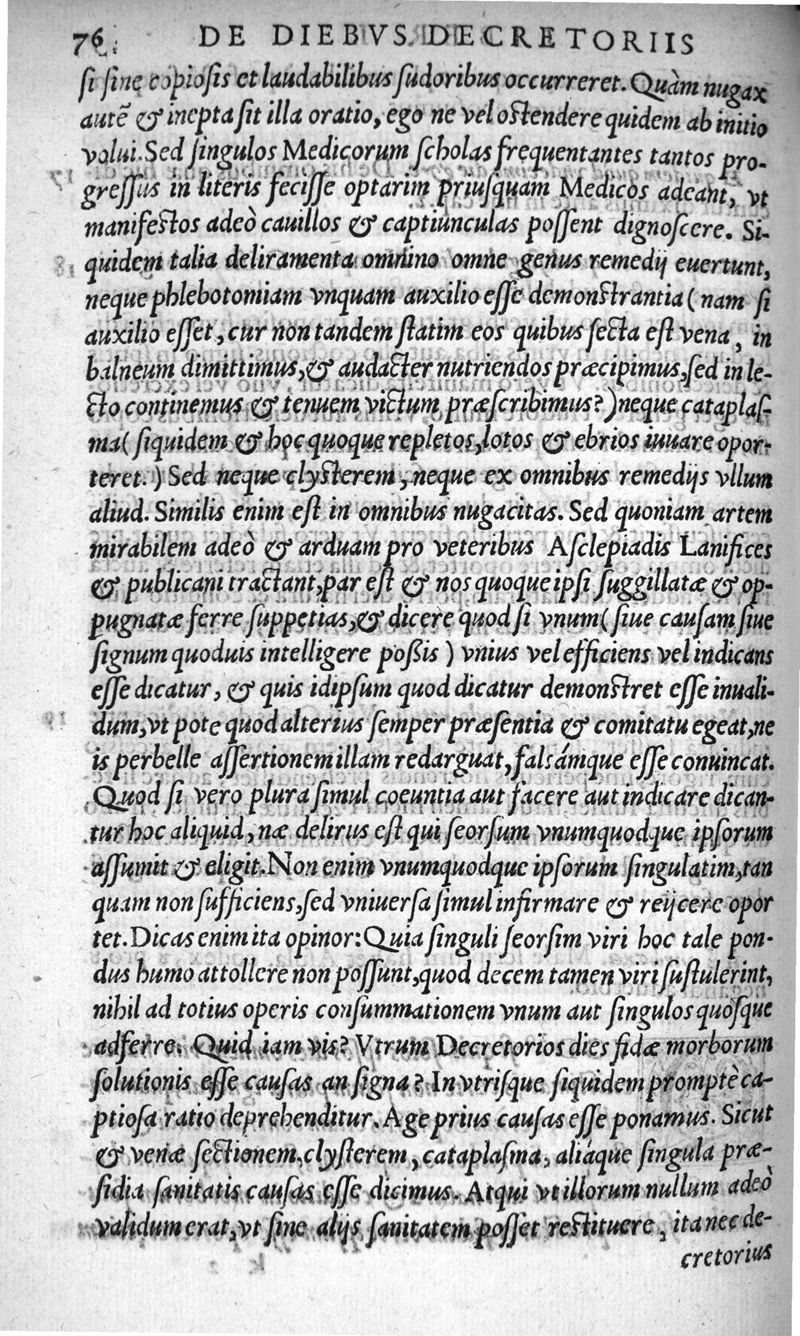 76. DE DIEBVS DECRETORIIS
ſi ſine copioſis et laudabilibus ſudoribus occurreret. Quàm nugax
autē & inepta ſit illa oratio, ego ne vel oſtendere quidem ab initio
volui. Sed ſingulos Medicorum ſcholas frequentantes tantos pro-
greſſus in literis feciſſe optarim priuſquam Medicos adeant, vt
manifeſtos adeò cauillos & captiunculas poſſent dignoſcere. Si-
quidem talia deliramenta omnino omne genus remedij euertunt,
neque phlebotomiam vnquam auxilio eſſe demonſtrantia ( nam ſi
auxilio eſſet, cur non tandem ſtatim eos quibus ſecta eſt vena, in
balneum dimittimus, & audacter nutriendos præcipimus, ſed in le-
cto continemus & tenuem victum præſcribimus? ) neque cataplaſ-
ma ( ſiquidem & hoc quoque repletos, lotos & ebrios iuuare opor-
teret. ) Sed neque clyſterem, neque ex omnibus remedijs vllum
aliud. Similis enim eſt in omnibus nugacitas. Sed quoniam artem
mirabilem adeò & arduam pro veteribus Aſclepiadis Lanifices
& publicani tractant, par eſt & nos quoque ipſi ſuggillatæ & op-
pugnatæ ferre ſuppetias, & dicere quod ſi vnum ( ſiue cauſam ſiue
ſignum quoduis intelligere poßis ) vnius vel efficiens vel indicans
eſſe dicatur, & quis idipſum quod dicatur demonſtret eſſe inuali-
dum, vt pote quod alterius ſemper præſentia & comitatu egeat, ne
is perbelle aſſertionem illam redarguat, falsámque eſſe conuincat.
Quod ſi vero plura ſimul coeuntia aut facere aut indicare dican-
tur hoc aliquid, næ delirus eſt qui ſeorſum vnumquodque ipſorum
aſſumit & eligit. Non enim vnumquodque ipſorum ſingulatim, tan
quam non ſufficiens, ſed vniuerſa ſimul infirmare & reijcere opor
tet. Dicas enim ita opinor: Quia ſinguli ſeorſim viri hoc tale pon-
dus humo attollere non poſſunt, quod decem tamen viri ſuſtulerint,
nihil ad totius operis conſummationem vnum aut ſingulos quoſque
adferre. Quid iam vis? Vtrum Decretorios dies fidæ morborum
ſolutionis eſſe cauſas an ſigna? In vtriſque ſiquidem promptè ca-
ptioſa ratio deprehenditur. Age prius cauſas eſſe ponamus. Sicut
& venæ ſectionem, clyſterem, cataplaſma, aliáque ſingula præ-
ſidia ſanitatis cauſas eſſe dicimus. Atqui vt illorum nullum adeò
validum erat, vt ſine alijs ſanitatem poſſet reſtituere, ita nec de-
cretorius